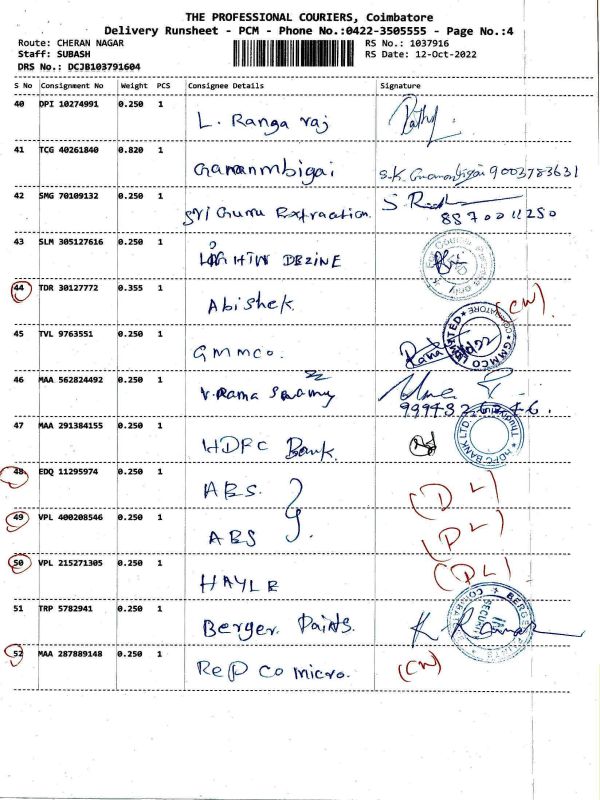 THE PROFESSIONAL COURIERS, Coimbatore
Delivery Runsheet - PCM - Phone No.:0422-3505555 - Page No.:4
Route: CHERAN NAGAR RS No.: 1037916
Staff: SUBASH RS Date: 12-Oct-2022
DRS No.: DCJB103791604
S No Consignment No Weight PCS Consignee Details Signature
40 DPI 10274991 0.250 1 L. Ranga raj
41 TCG 40261840 0.820 1 Gananmbigai S.K. 9003783631
42 SMG 70109132 0.250 1 Sri Guru Extraction
8870011250
43 SLM 305127616 0.250 1 DEZINE
44 TDR 30127772 0.355 1 Abishek (CN)
45 TVL 9763551 0.250 1 GMMCO. GMMCO LIMITED COIMBATORE
46 MAA 562824492 0.250 1 V. Rama Swamy
47 MAA 291384155 0.250 1 HDFC Bank. HDFC BANK LTD
48 EDQ 11295974 0.250 1 ABS. (DL)
49 VPL 400208546 0.250 1 ABS (DL)
50 VPL 215271305 0.250 1 HAYLE (DL)
51 TRP 5782941 0.250 1 Berger Paints.
52 MAA 287889148 0.250 1 Rep co micro. (CN)